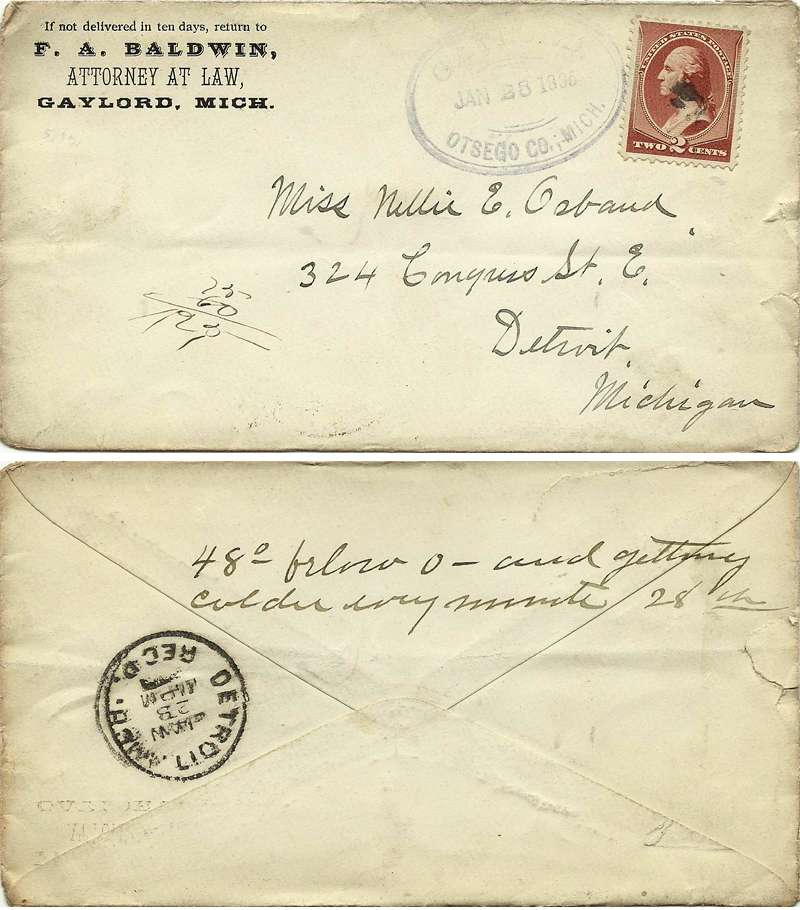 If not delivered in ten days, return to
F. A. BALDWIN,
ATTORNEY AT LAW,
GAYLORD, MICH.
JAN 28 188
OTSEGO CO., MICH.
UNITED STATES POSTAGE
TWO 2 CENTS
Miss Nellie E. Osband
324 Congress St. E.
Detroit
Michigan
60
48° below 0 - and getting
colder every minute 28th
DETROIT, MICH.
JAN
28
REC'D.